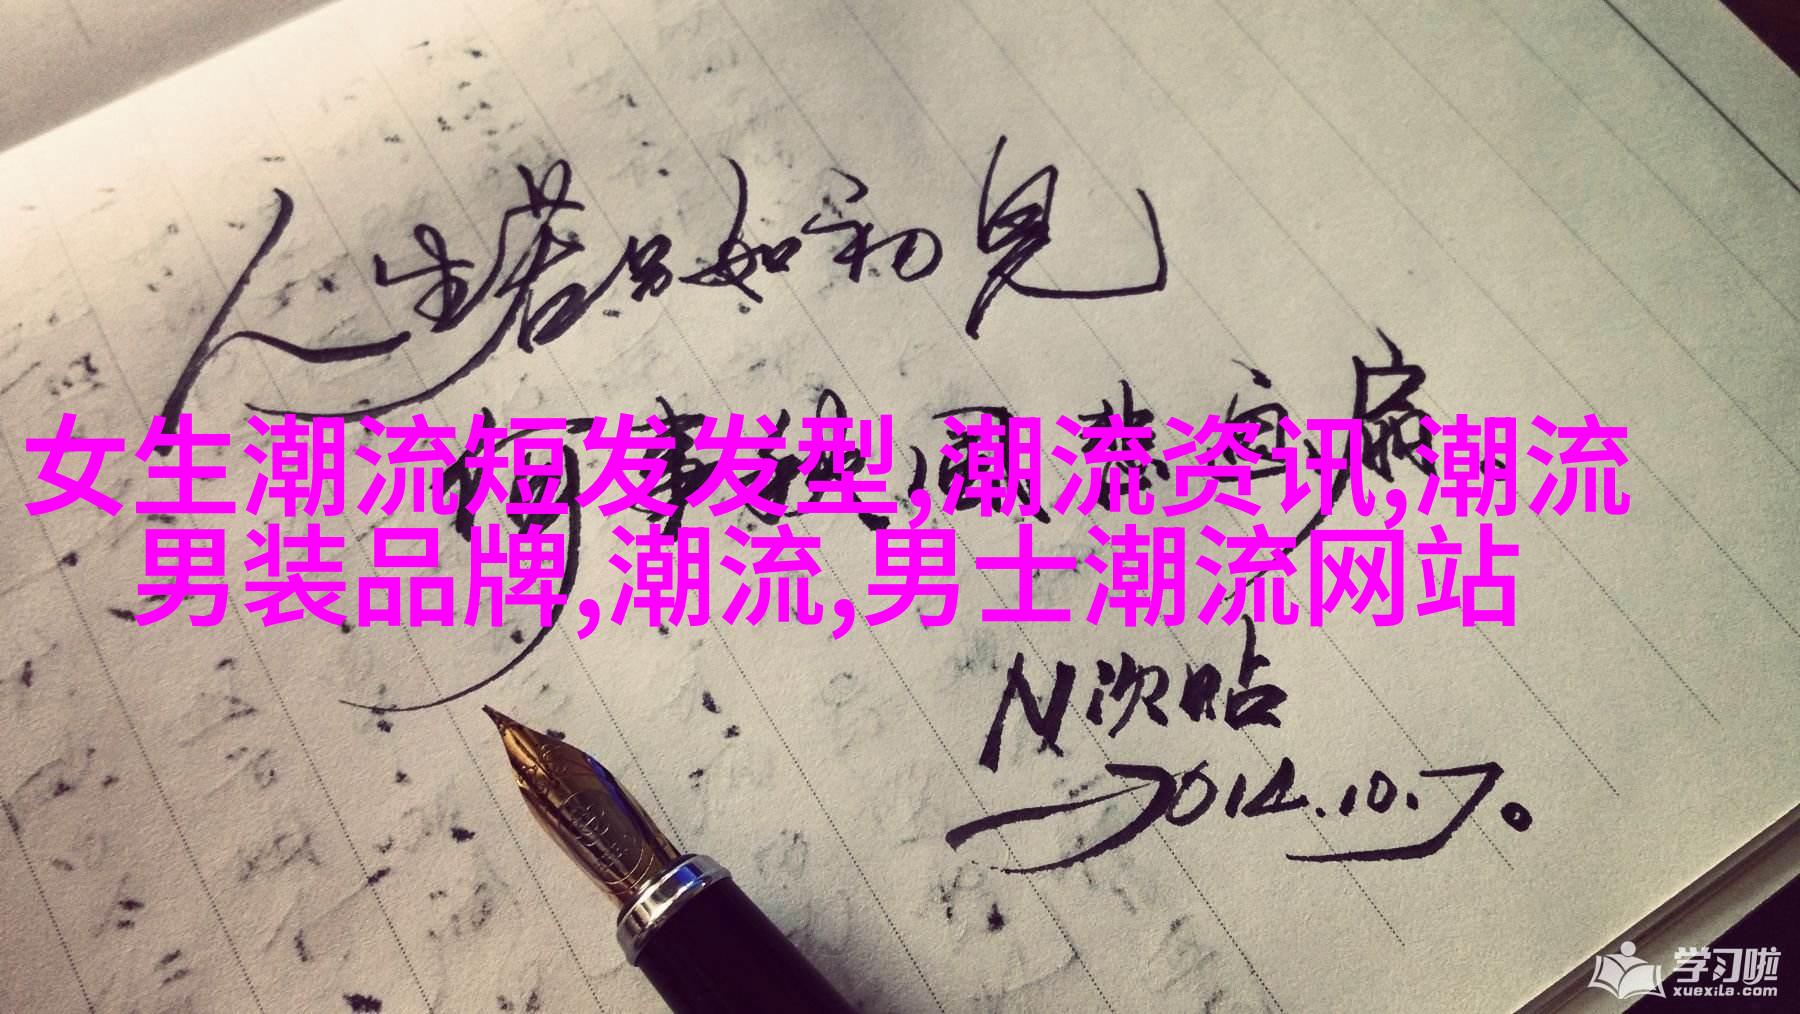 人生若只如初见
何事秋风悲画扇
女生潮流短发发型,潮流资讯,潮流
男装品牌,潮流,男士潮流网站
N次贴
2014.10.7。
学习啦
xuexila.com